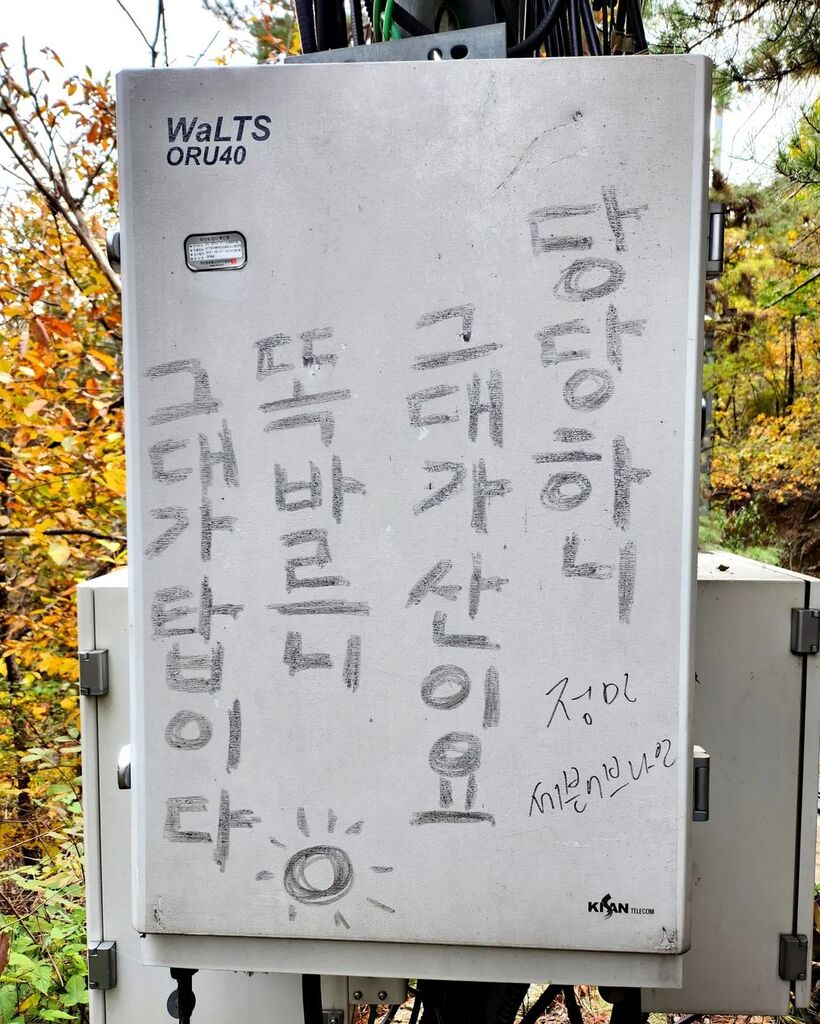 WaLTS
ORU40
당당하니
그대가 산이요
똑바르니
그대가 탑이다
KISAN TELECOM